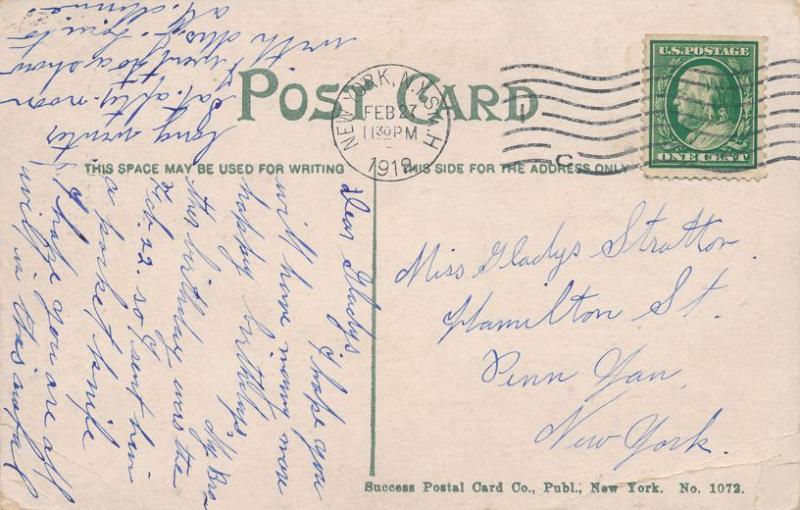 POST CARD
THIS SPACE MAY BE USED FOR WRITING
THIS SIDE FOR THE ADDRESS ONLY
U.S. POSTAGE
ONE CENT
NEW YORK, N.Y.
FEB 27
11 30 PM
C
Miss Gladys Stratton
Hamilton St.
Penn Yan,
New York.
Dear Gladys
I hope you
will have many more
happy birthdays.
My Bro
ther birthday was the
Feb. 22. so I sent him
a pocket knife
I hope you are all
well in this awful
long winter
Sat. after-noon
I went to a show
with
Success Postal Card Co., Publ., New York. No. 1072.